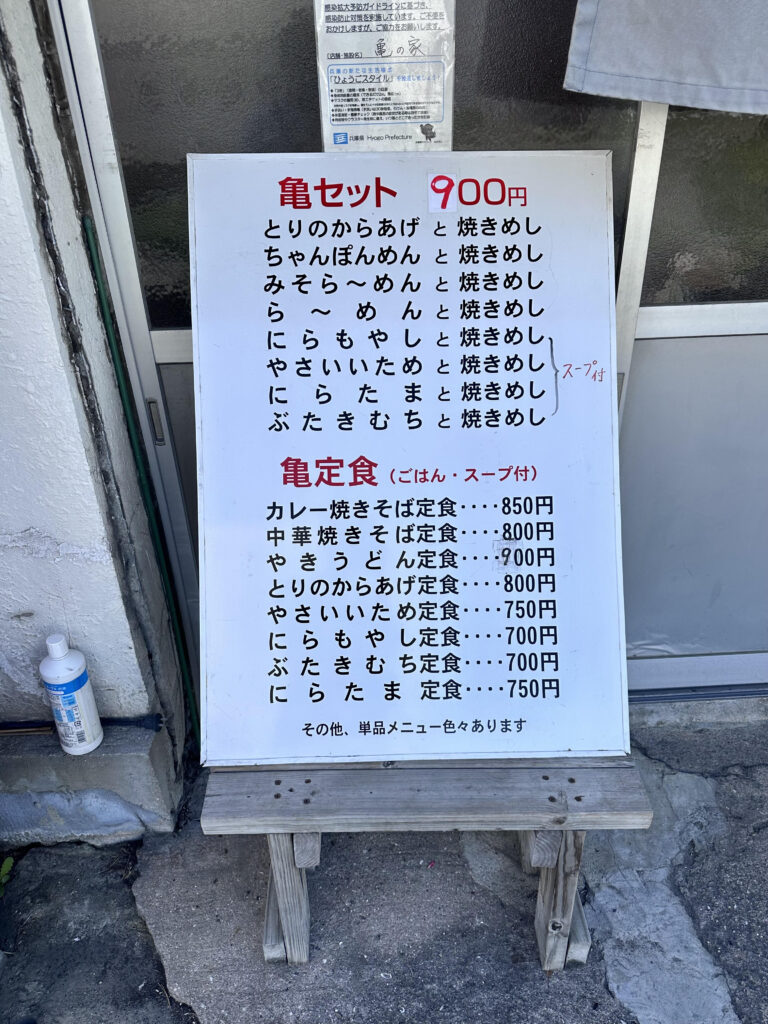 感染拡大予防ガイドラインに基づき、
感染防止対策を実施しています。ご不便を
おかけしますが、ご協力をお願いします。
(店舗・施設名) 亀の家
「ひょうごスタイル」を推進しましょう!
兵庫県 Hyogo Prefecture
亀セット 900円
とりのからあげ と 焼きめし
ちゃんぽんめん と 焼きめし
みそら〜めん と 焼きめし
ら〜めん と 焼きめし
にらもやし と 焼きめし
やさいいため と 焼きめし
にらたま と 焼きめし
ぶたきむち と 焼きめし
スープ付
亀定食(ごはん・スープ付)
カレー焼きそば定食‥‥850円
中華焼きそば定食‥‥800円
やきうどん定食‥‥900円
とりのからあげ定食‥‥800円
やさいいため定食‥‥750円
にらもやし定食‥‥700円
ぶたきむち定食‥‥700円
にらたま 定食‥‥750円
その他、単品メニュー色々あります